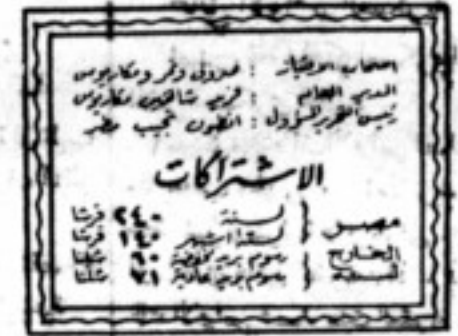 اصحاب الامتياز : صروف ونمر ومكاريوس
المدير العام : فريد شاهين مكاريوس
رئيس التحرير المسؤول : انطون نجيب مطر
الاشتراكات
مصر لسنة ٢٤٠ قرشا
لستة اشهر ١٤٠ قرشا
الخارج رسوم بريد ٦٠ شلنا
لسنة رسوم بريد عادية ٧١ شلنا